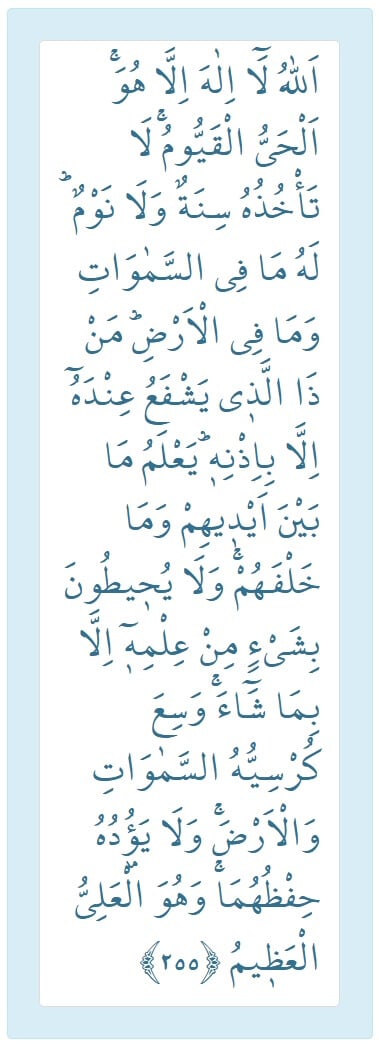 اَللّٰهُ لَٓا اِلٰهَ اِلَّا هُوَۚ
اَلْحَيُّ الْقَيُّومُۚ لَا
تَأْخُذُهُ سِنَةٌ وَلَا نَوْمٌۜ
لَهُ مَا فِى السَّمٰوَاتِ
وَمَا فِى الْاَرْضِۜ مَنْ
ذَا الَّذ۪ى يَشْفَعُ عِنْدَهُٓ
اِلَّا بِاِذْنِه۪ۜ يَعْلَمُ مَا
بَيْنَ اَيْد۪يهِمْ وَمَا
خَلْفَهُمْۚ وَلَا يُح۪يطُونَ
بِشَىْءٍ مِنْ عِلْمِه۪ٓ اِلَّا
بِمَا شَٓاءَۚ وَسِعَ
كُرْسِيُّهُ السَّمٰوَاتِ
وَالْاَرْضَۚ وَلَا يَؤُ۫دُهُ
حِفْظُهُمَاۚ وَهُوَ الْعَلِىُّ
الْعَظ۪يمُ ﴿٢٥٥﴾